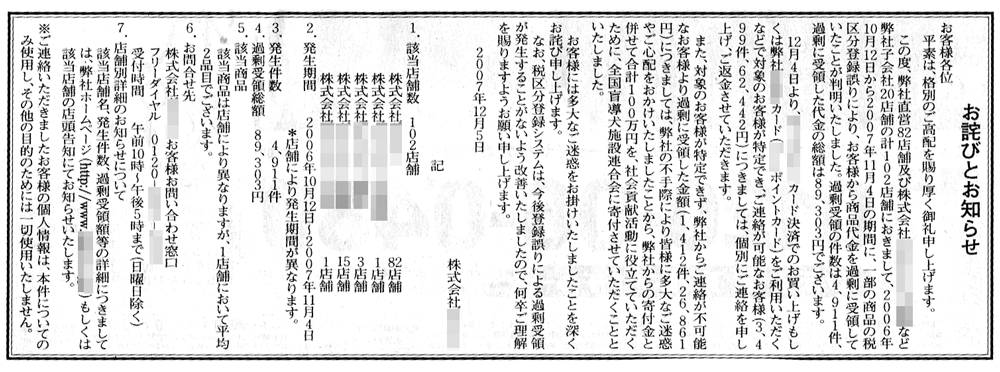 お詫びとお知らせ
お客様各位
平素は、格別のご高配を賜り厚く御礼申し上げます。
この度、弊社直営82店舗及び株式会社　など
弊社子会社20店舗の計102店舗におきまして、2006年
10月12日から2007年11月4日の期間に、一部の商品の税
区分登録誤りにより、お客様から商品代金を過剰に受領して
いたことが判明いたしました。過剰受領の件数は4,911件、
過剰に受領した代金の総額は89,303円でございます。
12月4日より、　カード決済でのお買い上げもし
くは弊社　カード（　ポイントカード）をご利用いただく
などで対象のお客様が特定でき、ご連絡が可能なお客様（3,4
99件、62,442円）につきましては、個別にご連絡を申し
上げ、ご返金させていただきます。
また、対象のお客様が特定できず、弊社からご連絡が不可能
なお客様より過剰に受領した金額（1,412件 26,861
円）につきましては、弊社の不手際により皆様に多大なご迷惑
やご心配をおかけいたしましたことから、弊社からの寄付金と
併せて合計100万円を、社会貢献活動に役立てていただく
ために、全国盲導犬施設連合会に寄付させていただくことと
いたしました。
お客様には多大なご迷惑をお掛けいたしましたことを深く
お詫び申し上げます。
なお、税区分登録システムは、今後登録誤りによる過剰受領
が発生することがないよう改善いたしましたので、何卒ご理解
を賜りますようお願い申し上げます。
2007年12月5日
株式会社
記
1．該当店舗数　102店舗
株式会社　82店舗
株式会社　1店舗
株式会社　3店舗
株式会社　15店舗
株式会社　1店舗
2．発生期間　2006年10月12日～2007年11月4日
＊店舗により発生期間が異なります。
3．発生件数　4,911件
4．過剰受領総額　89,303円
5．該当商品
該当商品は店舗により異なりますが、1店舗において平均
2品目でございます。
6．お問合せ先
株式会社　お客様お問い合わせ窓口
フリーダイヤル　0120-
受付時間　午前10時～午後5時まで（日曜日除く）
7．店舗別詳細のお知らせについて
該当店舗名、発生件数、過剰受領額等の詳細につきまして
は、弊社ホームページ（http://www.　）もしくは
該当店舗の店頭告知にてお知らせいたします。
※ご連絡いただきましたお客様の個人情報は、本件についての
み使用し、その他の目的のためには一切使用いたしません。